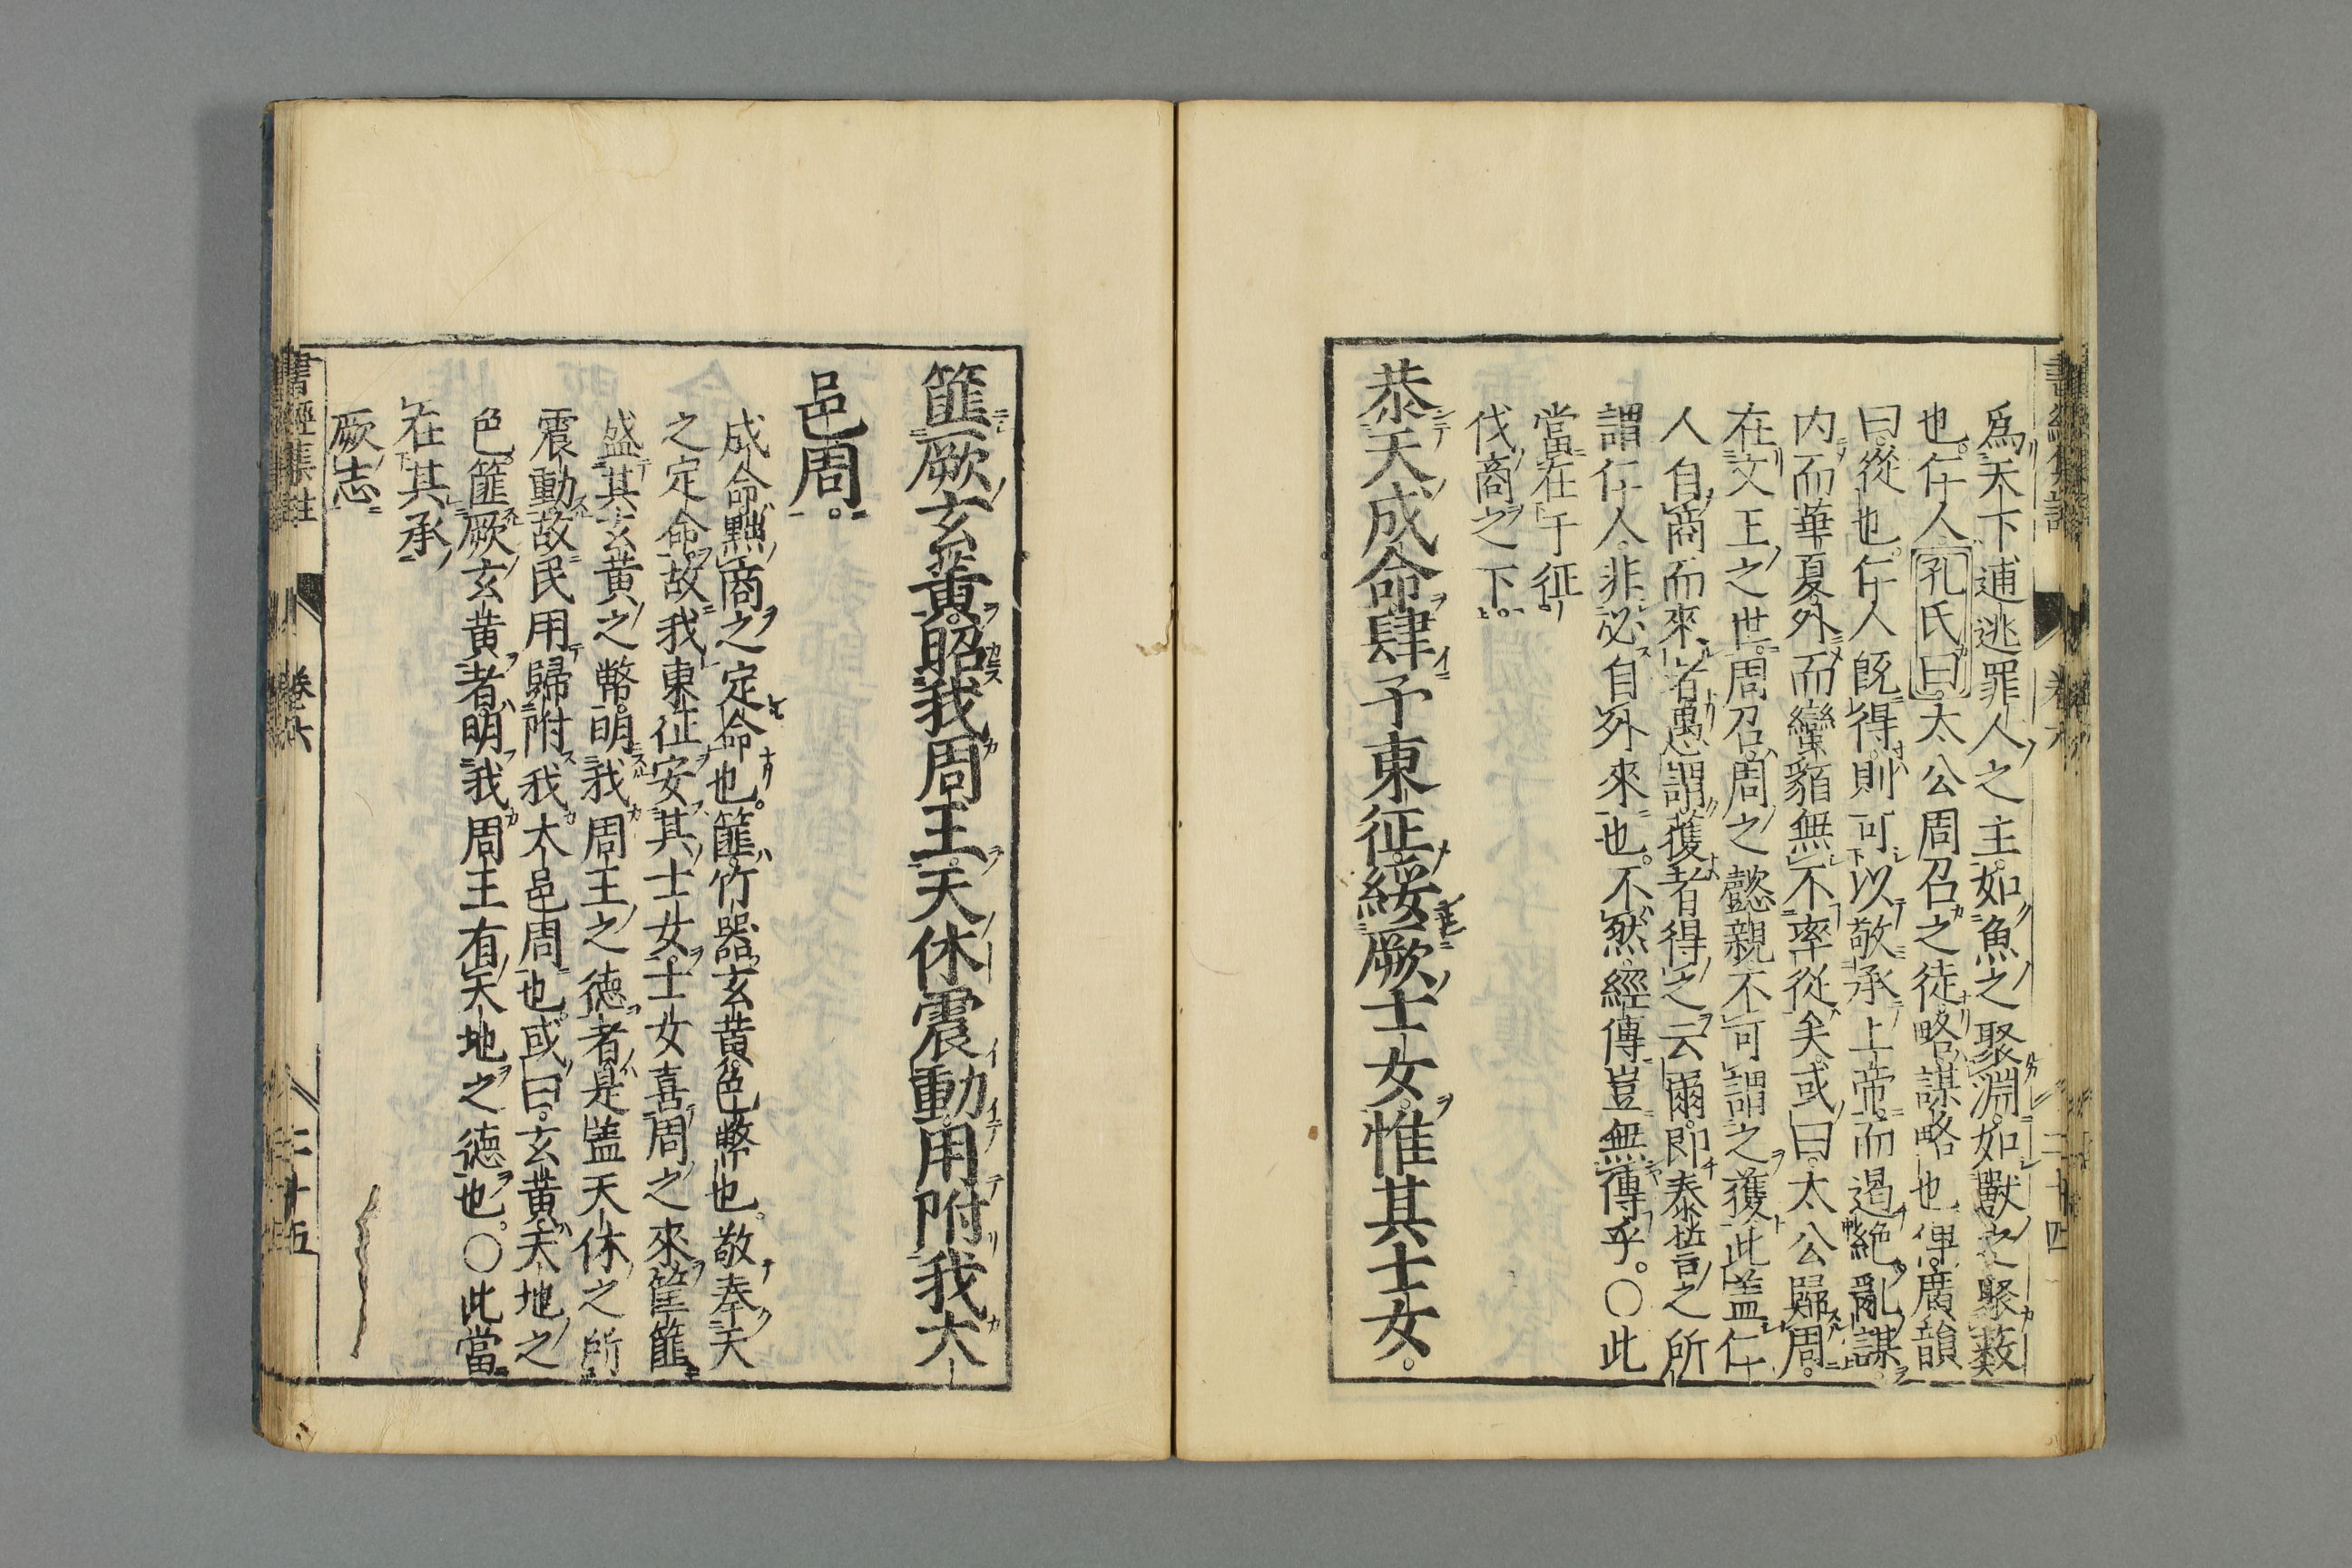 為天下逋逃罪人之主。如魚之聚淵。如獸之聚藪
也。仁人孔氏曰。太公周召之徒。略。謀略也。俾。廣韻
曰。從也。仁人既得。則可以敬承上帝。而遏絶亂謀。
内而華夏。外而蠻貊。無不率從矣。或曰。太公歸周。
在文王之世。周召。周之懿親。不可謂之獲。此盖仁
人自商而來者。愚謂獲者得之云爾。即泰誓之所
謂仁人。非必自外來也。不然。經傳豈無傳乎。〇此
當在于征
伐商之下。
恭天成命肆予東征。綏厥士女。惟其士女。
篚厥玄黃。昭我周王。天休震動。用附我大
邑周。
成命。黜商之定命也。篚。竹器。玄黃。色幣也。敬奉天
之定命。故我東征安其士女。士女喜周之來。筐篚
盛其玄黃之幣。明我周王之德者。是盖天休之所
震動。故民用歸附我大邑周也。或曰。玄黃。天地之
色。篚厥玄黃者。明我周王有天地之德也。〇此當
在其承
厥志
書經集註
卷六
二十四
書經集註
卷六
二十五